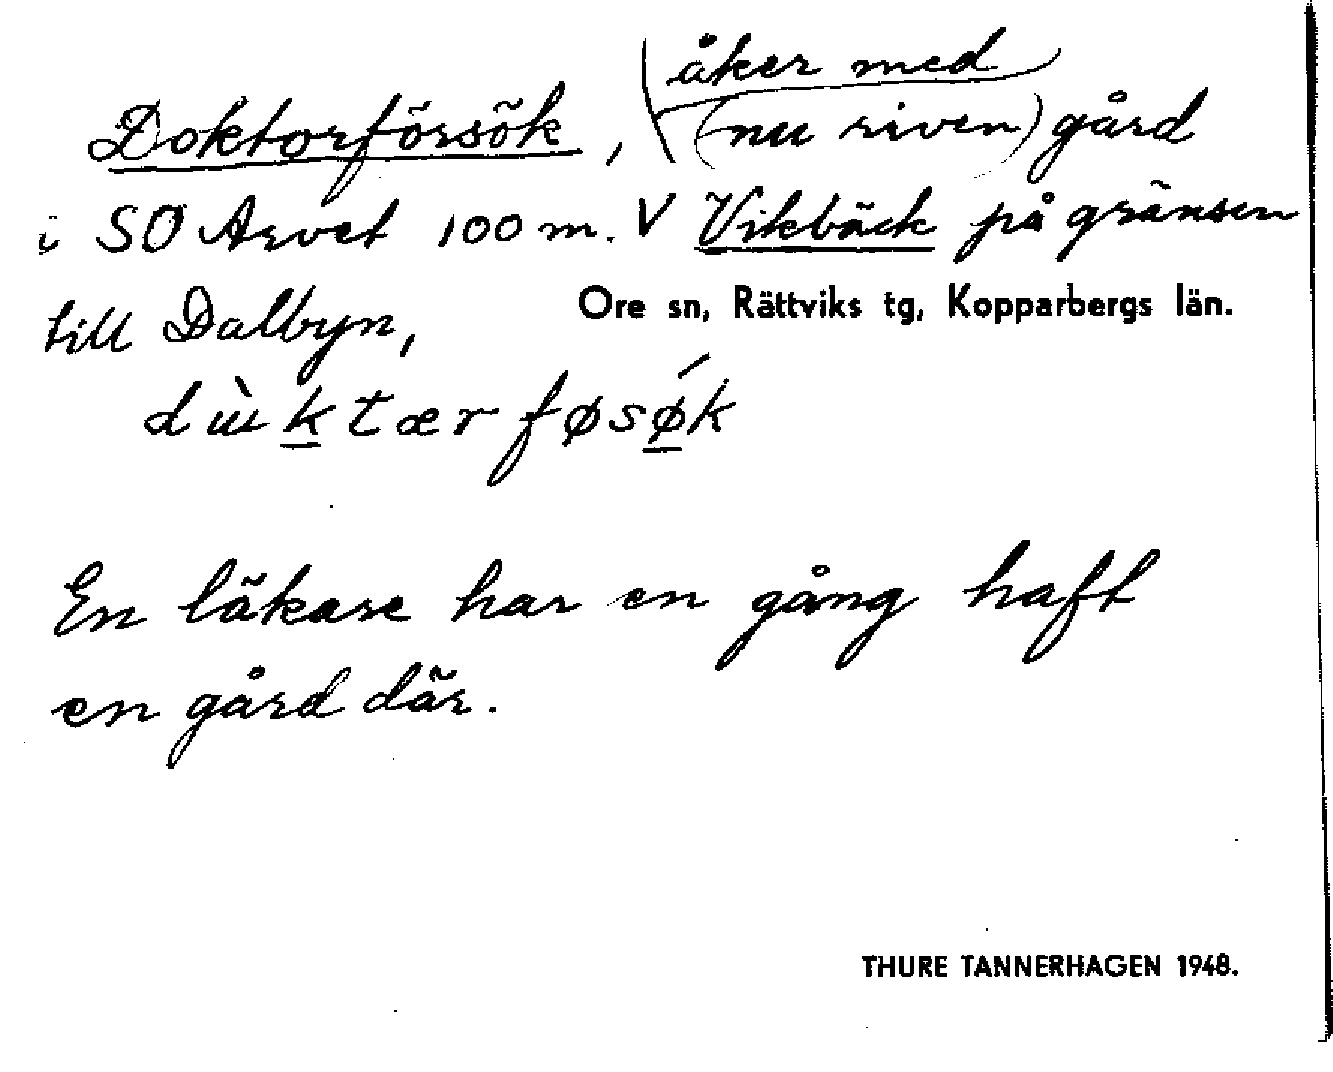 åker med
Doktorförsök, (nu riven) gård
i SO Arvet 100 m. V Vikbäck på gränsen
till Dalbyn,
Ore sn, Rättviks tg, Kopparbergs län.
dùktær føsǿk
En läkare har en gång haft
en gård där.
THURE TANNERHAGEN 1948.